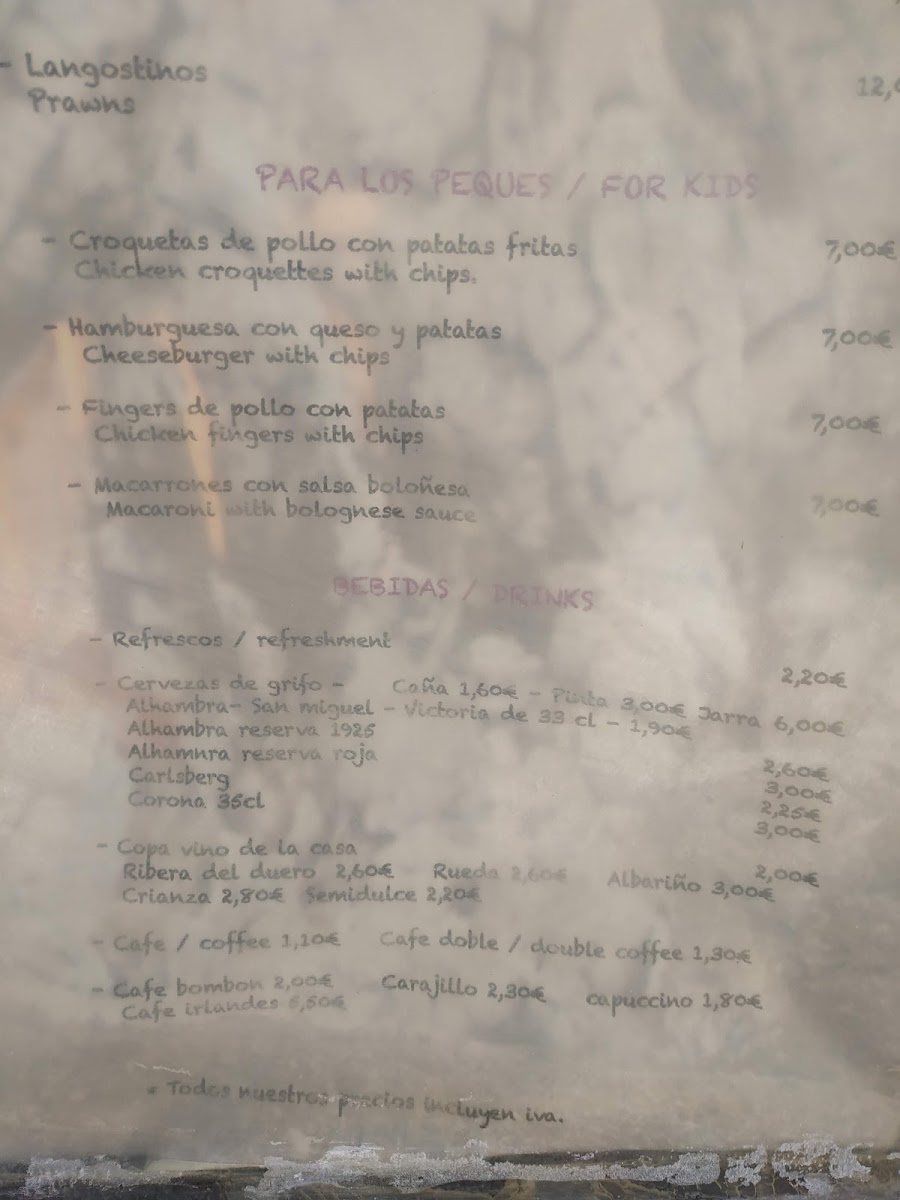 - Langostinos
Prawns 12,
PARA LOS PEQUES / FOR KIDS
- Croquetas de pollo con patatas fritas 7,00€
Chicken croquettes with chips.
- Hamburguesa con queso y patatas 7,00€
Cheeseburger with chips
- Fingers de pollo con patatas 7,00€
Chicken fingers with chips
- Macarrones con salsa boloñesa 7,00€
Macaroni with bolognese sauce
BEBIDAS / DRINKS
- Refrescos / refreshment 2,20€
- Cervezas de grifo - Caña 1,60€ - Pinta 3,00€ Jarra 6,00€
Alhambra- San miguel - Victoria de 33 cl - 1,90€
Alhambra reserva 1925 2,60€
Alhamnra reserva roja 3,00€
Carlsberg 2,25€
Corona 35cl 3,00€
- Copa vino de la casa 2,00€
Ribera del duero 2,60€ Rueda 2,60€ Albariño 3,00€
Crianza 2,80€ Semidulce 2,20€
- Cafe / coffee 1,10€ Cafe doble / double coffee 1,30€
- Cafe bombon 2,00€ Carajillo 2,30€ capuccino 1,80€
Cafe irlandes
* Todos nuestros precios incluyen iva.